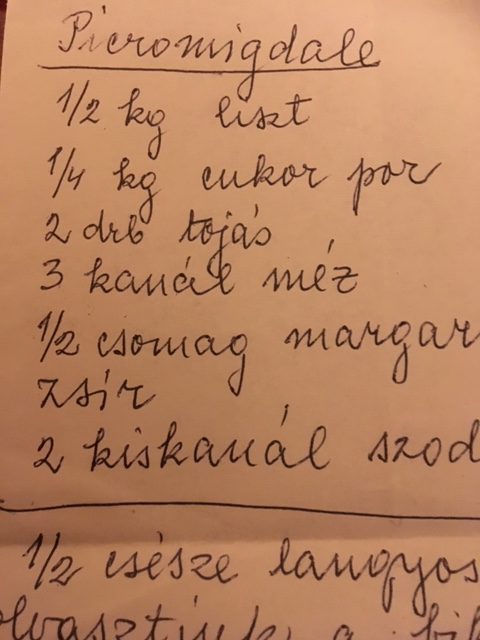 Picromigdale
1/2 kg liszt
1/4 kg cukor por
2 drb tojás
3 kanál méz
1/2 csomag margar
zsír
2 kiskanál szod
1/2 csésze langyos